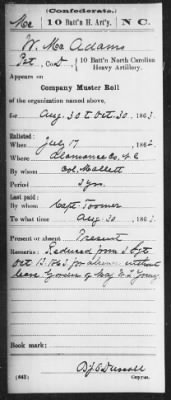 (Confederate.)
Mc 10 Batt'n H. Art'y. N C.
W. Mc Adams
Pvt, Co. D, 10 Batt'n North Carolina
Heavy Artillery.
Appears on
Company Muster Roll
of the organization named above,
for Aug. 30 to Oct. 30, 1863.
Enlisted:
When July 17, 1862.
Where Alamance Co. N C
By whom Col. Mallett
Period 3 yrs.
Last paid:
By whom Capt. Toomer
To what time Aug 30, 1863.
Present or absent Present
Remarks: Reduced from Sgt
Oct 13 1863 for absence without
leave by order of Maj W L Young
Book mark:
(642) Copyist.